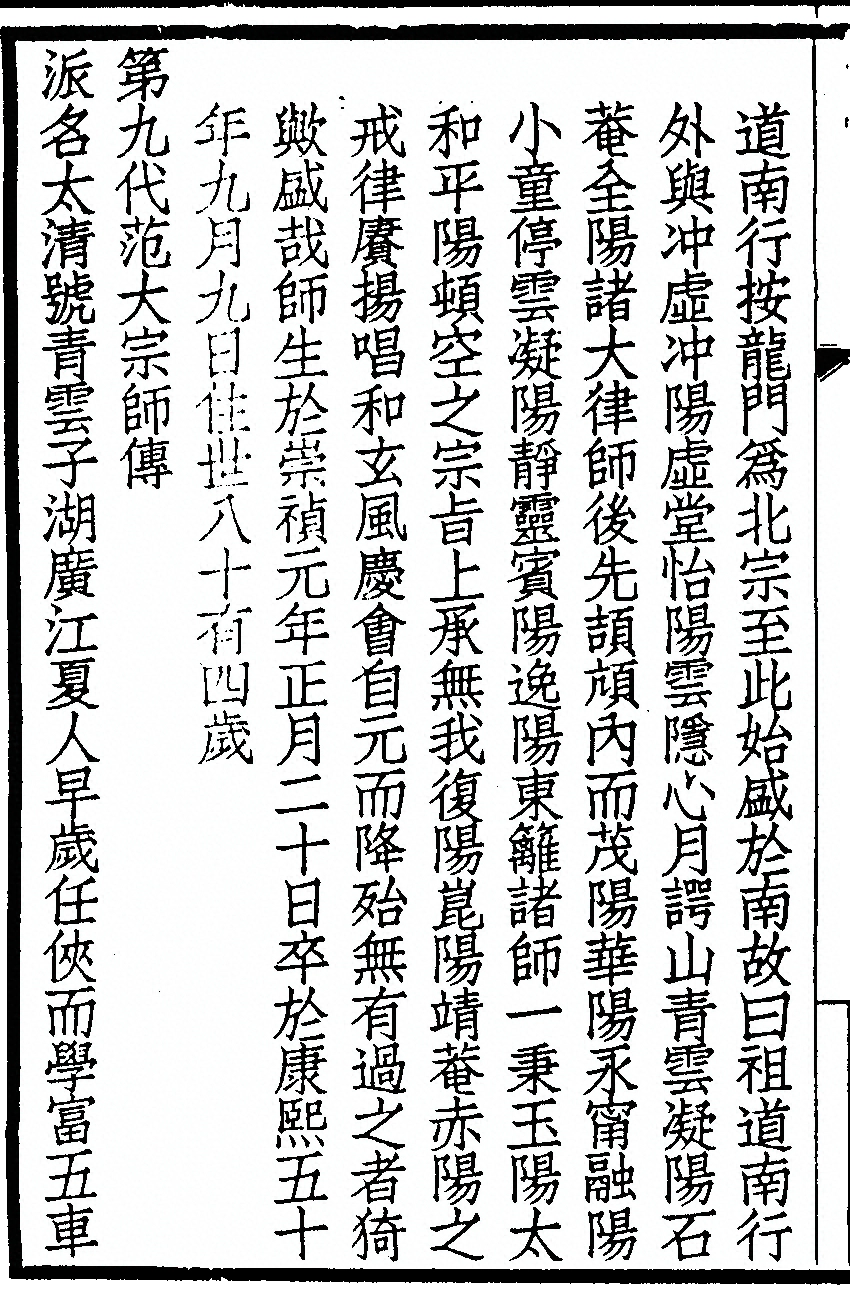 道南行按龍門爲北宗至此始盛於南故曰祖道南行
外與冲虛冲陽虛堂怡陽雲隱心月諤山青雲凝陽石
菴全陽諸大律師後先頡頏內而茂陽華陽永甯融陽
小童停雲凝陽靜靈賓陽逸陽東籬諸師一秉玉陽太
和平陽頓空之宗旨上承無我復陽崑陽靖菴赤陽之
戒律賡揚唱和玄風慶會自元而降殆無有過之者猗
歟盛哉師生於崇禎元年正月二十日卒於康熙五十
年九月九日住世八十有四歲
第九代范大宗師傳
派名太清號青雲子湖廣江夏人早歲任俠而學富五車